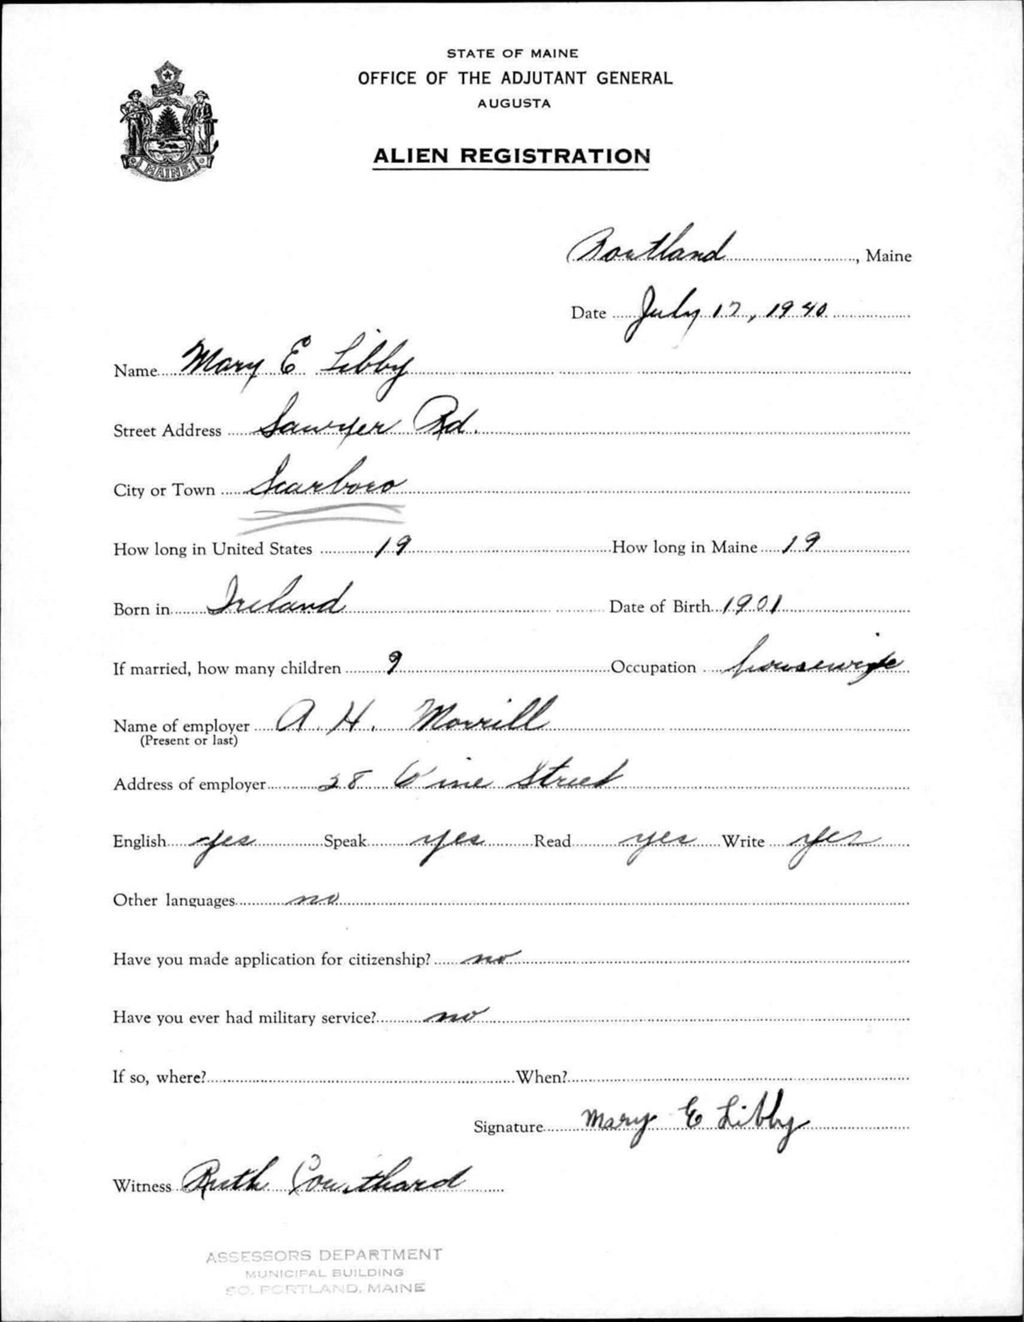 STATE OF MAINE
OFFICE OF THE ADJUTANT GENERAL
AUGUSTA
ALIEN REGISTRATION
MAINE
Portland, Maine
Date July 17, 1940
Name Mary E Libby
Street Address Sawyer Rd.
City or Town Scarboro
How long in United States 19 How long in Maine 19
Born in Ireland Date of Birth 1901
If married, how many children 9 Occupation housewife
Name of employer A. H. Morrill
(Present or last)
Address of employer 28 Street
English yes Speak yes Read yes Write yes
Other languages no
Have you made application for citizenship? no
Have you ever had military service? no
If so, where? When?
Signature Mary E Libby
Witness Ruth
ASSESSORS DEPARTMENT
MUNICIPAL BUILDING
SO. PORTLAND, MAINE